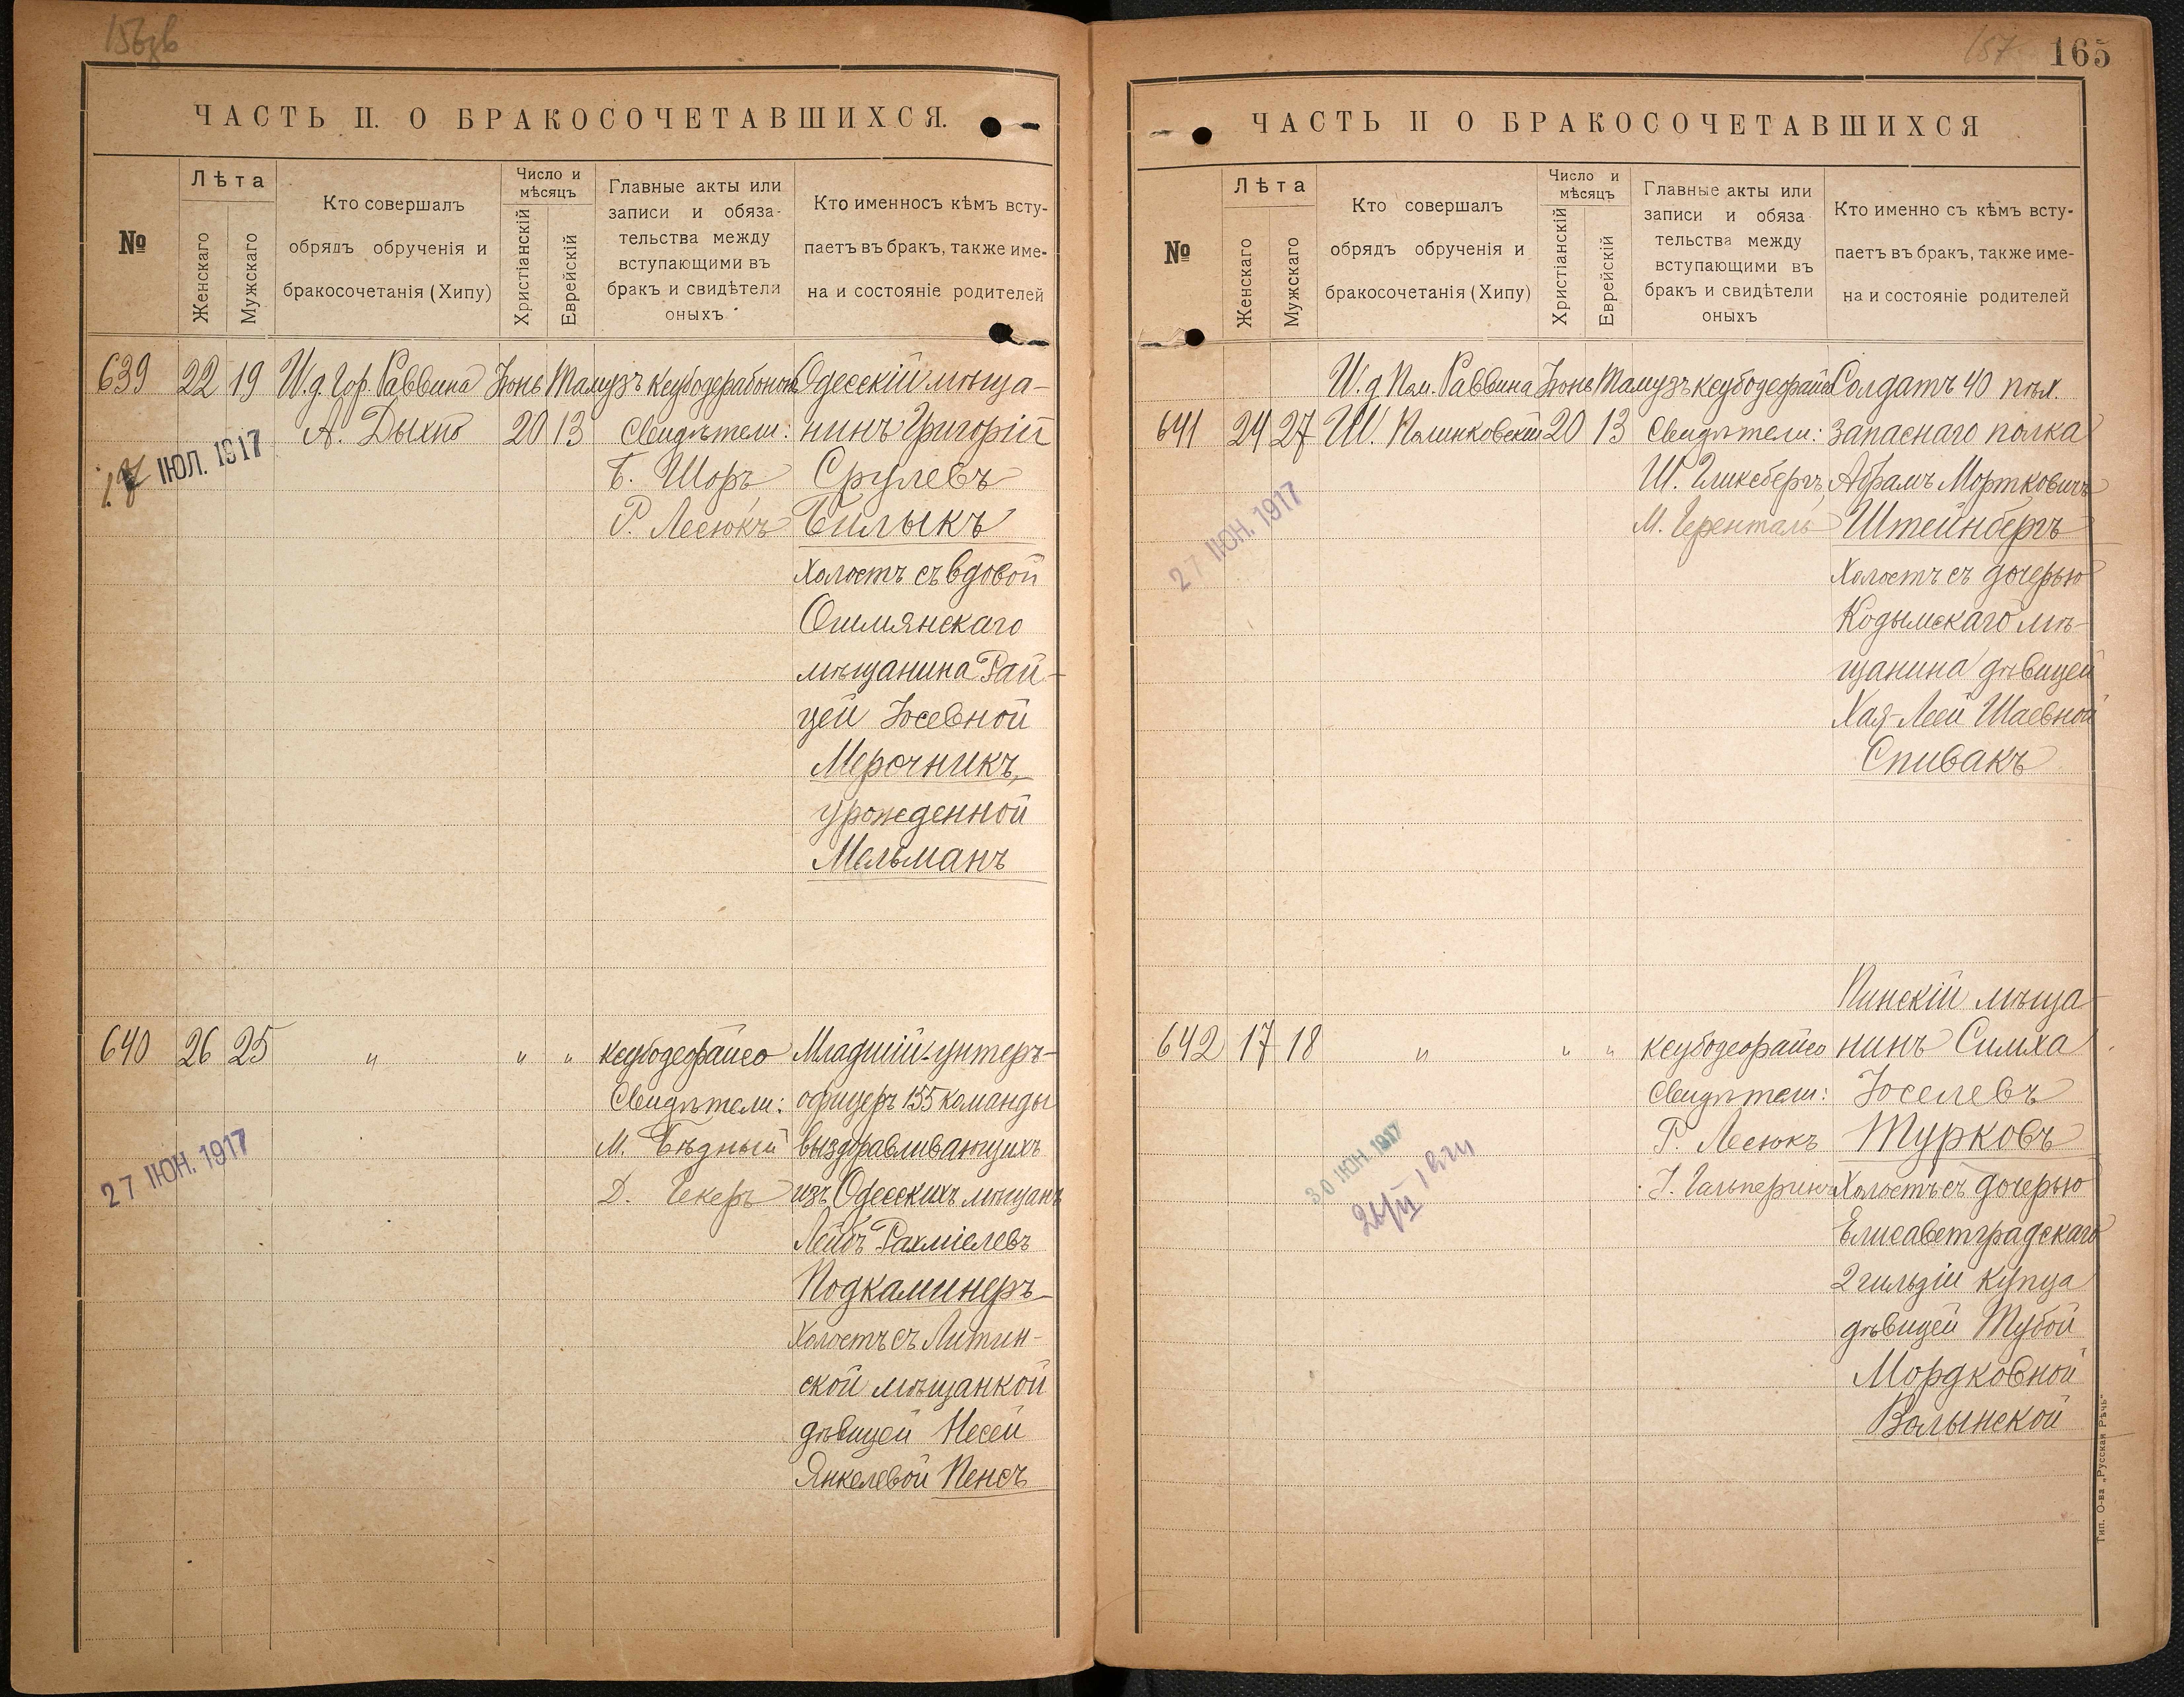 ЧАСТЬ II. О БРАКОСОЧЕТАВШИХСЯ.
№
Лѣта
Женскаго
Мужскаго
Кто совершалъ
обрядъ обрученія и
бракосочетанія (Хипу)
Число и
мѣсяцъ
Христіанскій
Еврейскій
Главные акты или
записи и обяза-
тельства между
вступающими въ
бракъ и свидѣтели
оныхъ
Кто именносъ кѣмъ всту-
паетъ въ бракъ, также име-
на и состояніе родителей
639 22 19 И.д. Гор. Раввина Іюнь Тамузъ Одесскій мѣща-
А. Дыхно 20 13 Свидѣтели: нинъ Григорій
ІЮЛ. 1917
Б. Шоръ Срулевъ
Р. Лесюкъ Билыкъ
холостъ съ вдовой
Ошмянскаго
мѣщанина Рай-
цей Іосевной
Мерочникъ,
урожденной
Мельманъ
640 26 25 „ „ „ ксубодеорайсо Младшій унтеръ-
Свидѣтели: офицеръ 155 команды
М. Бѣдный выздоравливающихъ
27 ІЮН. 1917
Д. Чекеръ изъ Одесскихъ мѣщанъ
Лейбъ Рахміелевъ
Подкаминеръ
холостъ съ Литин-
ской мѣщанкой
дѣвицей Несей
Янкелевой Пенсъ
165
ЧАСТЬ II О БРАКОСОЧЕТАВШИХСЯ
№
Лѣта
Женскаго
Мужскаго
Кто совершалъ
обрядъ обрученія и
бракосочетанія (Хипу)
Число и
мѣсяцъ
Христіанскій
Еврейскій
Главные акты или
записи и обяза
тельства между
вступающими въ
бракъ и свидѣтели
оныхъ
Кто именно съ кѣмъ всту-
паетъ въ бракъ, также име-
на и состояніе родителей
И.д. Пом. Раввина Іюнь Тамузъ Солдатъ 40 пѣх.
641 24 27 Ш. Полинковскій 20 13 Свидѣтели: запаснаго полка
Ш. Гликсбергъ, Абрамъ Мортковичъ
27 ІЮН. 1917
М. Геренталь Штейнбергъ
холостъ съ дочерью
Кодымскаго мѣ-
щанина дѣвицей
Хая-Леей Шаевной
Спивакъ
Пинскій мѣща-
642 17 18 „ „ „ ксубодеорайсо нинъ Симха
Свидѣтели: Іоселевъ
30 ІЮН. 1917
Р. Лесюкъ Турковъ
І. Гальперинъ холостъ съ дочерью
Елисаветградскаго
2 гильдіи купца
дѣвицей Тубой
Мордковной
Волынской
Тип. О-ва „Русская Рѣчь"